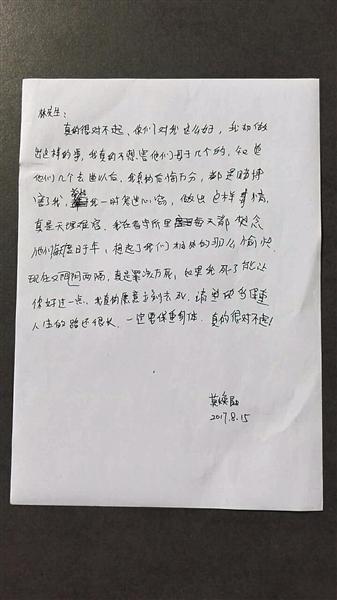 林先生：
真的很对不起、你们对我这么好，我却做
出这样的事，我真的不想害他们母子几个的，知道
他们几个去世以后，我真的后悔万分，都是赌博
害了我，我一时鬼迷心窍，做出这样事情，
真是天理难容。我在看守所里每天都想念
他们 日子，想起了我们相处的那么愉快，
现在又阴阳两隔，真是罪该万死，如果我死了能让
你好过一点，我真的愿意立刻去死，请 多保重
人生的路还很长，一定要保重身体．真的很对不起！
莫焕晶
2017.8.15